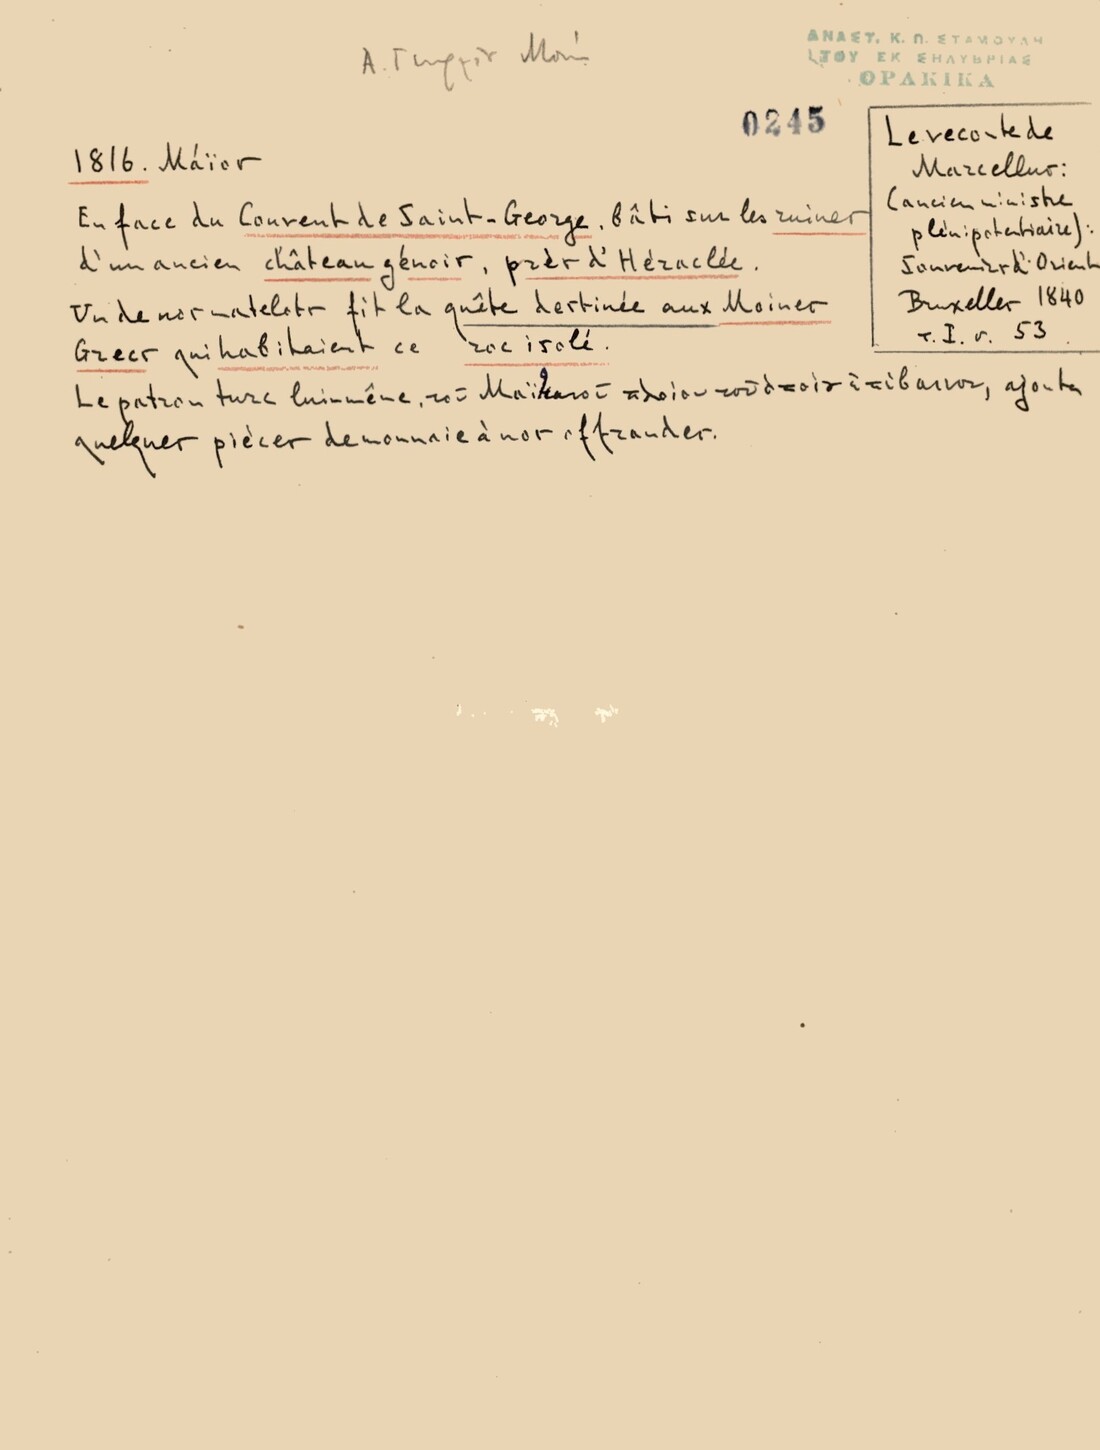 Α. Γεωργίου Μονή
ΑΝΑΣΤ. Κ. Π. ΣΤΑΜΟΥΛΗ
ΤΟΥ ΕΚ ΣΗΛΥΒΡΙΑΣ
ΘΡΑΚΙΚΑ
0245
Le vecomte de
Marcellus:
(ancien ministre
plénipotentiaire):
Souvenirs d'Orient
Bruxelles 1840
τ. I. σ. 53
1816. Μάϊος
En face du Couvent de Saint-George, bâti sur les ruines
d'un ancien château génois, près d'Héraclée.
Un de nos matelots fit la quête destinée aux Moines
Grecs qui habitaient ce roc isolé.
Le patron turc luimmême, τοῦ πλοίου τοῦ ὁποίου ἐπέβαινον, ajouta
quelques pièces de monnaie à nos offrandes.